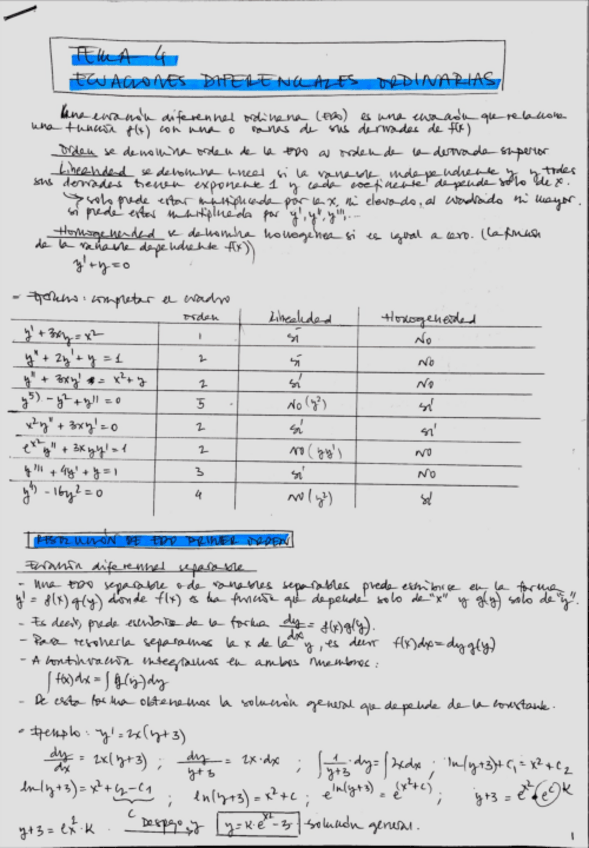 TEMA 4
ECUACIONES DIFERENCIALES ORDINARIAS
Una ecuación diferencial ordinaria (EDO) es una ecuación que relaciona
una función f(x) con una o varias de sus derivadas de f(x)
Orden se denomina orden de la EDO al orden de la derivada superior
Linealidad se denomina lineal si la variable independiente y, y todas
sus derivadas tienen exponente 1 y cada coeficiente depende solo de x.
↳ solo puede estar multiplicada por la x, ni elevado, al cuadrado ni mayor.
ni puede estar multiplicada por y', y'', y'''...
Homogeneidad se denomina homogénea si es igual a cero. (la función
de la variable dependiente f(x))
y' + y = 0
- Ejercicio: completar el cuadro
orden Linealidad Homogeneidad
y' + 3xy = x² 1 sí No
y'' + 2y' + y = 1 2 sí No
y'' + 3xy' = x² + y 2 sí No
y⁵⁾ - y² + y'' = 0 5 No (y²) sí
x²y'' + 3xy' = 0 2 sí sí
e^x² y'' + 3xyy' = 1 2 No (yy') No
y''' + 4y' + y = 1 3 sí No
y⁴⁾ - 16y² = 0 4 No (y²) sí
RESOLUCIÓN DE EDO PRIMER ORDEN
Ecuación diferencial separable
- Una EDO separable o de variables separables puede escribirse en la forma
y' = f(x) g(y) donde f(x) es la función que depende solo de "x" y g(y) solo de "y".
- Es decir, puede escribirse de la forma dy/dx = f(x)g(y).
- Para resolverla separamos la x de la y, es decir f(x)dx = dy g(y)
- A continuación integramos en ambos miembros:
∫f(x)dx = ∫g(y)dy
- De esta forma obtenemos la solución general que depende de la constante.
- Ejemplo: y' = 2x(y+3)
dy/dx = 2x(y+3) ; dy/y+3 = 2x·dx ; ∫1/y+3 · dy = ∫2xdx ; ln(y+3) + C₁ = x² + C₂
ln(y+3) = x² + C₂ - C₁ ; ln(y+3) = x² + C ; e^ln(y+3) = e^(x²+C) ; y+3 = e^x² · e^C K
C
y+3 = e^x² · K Despejo y y = K·e^x² - 3 solución general.
1